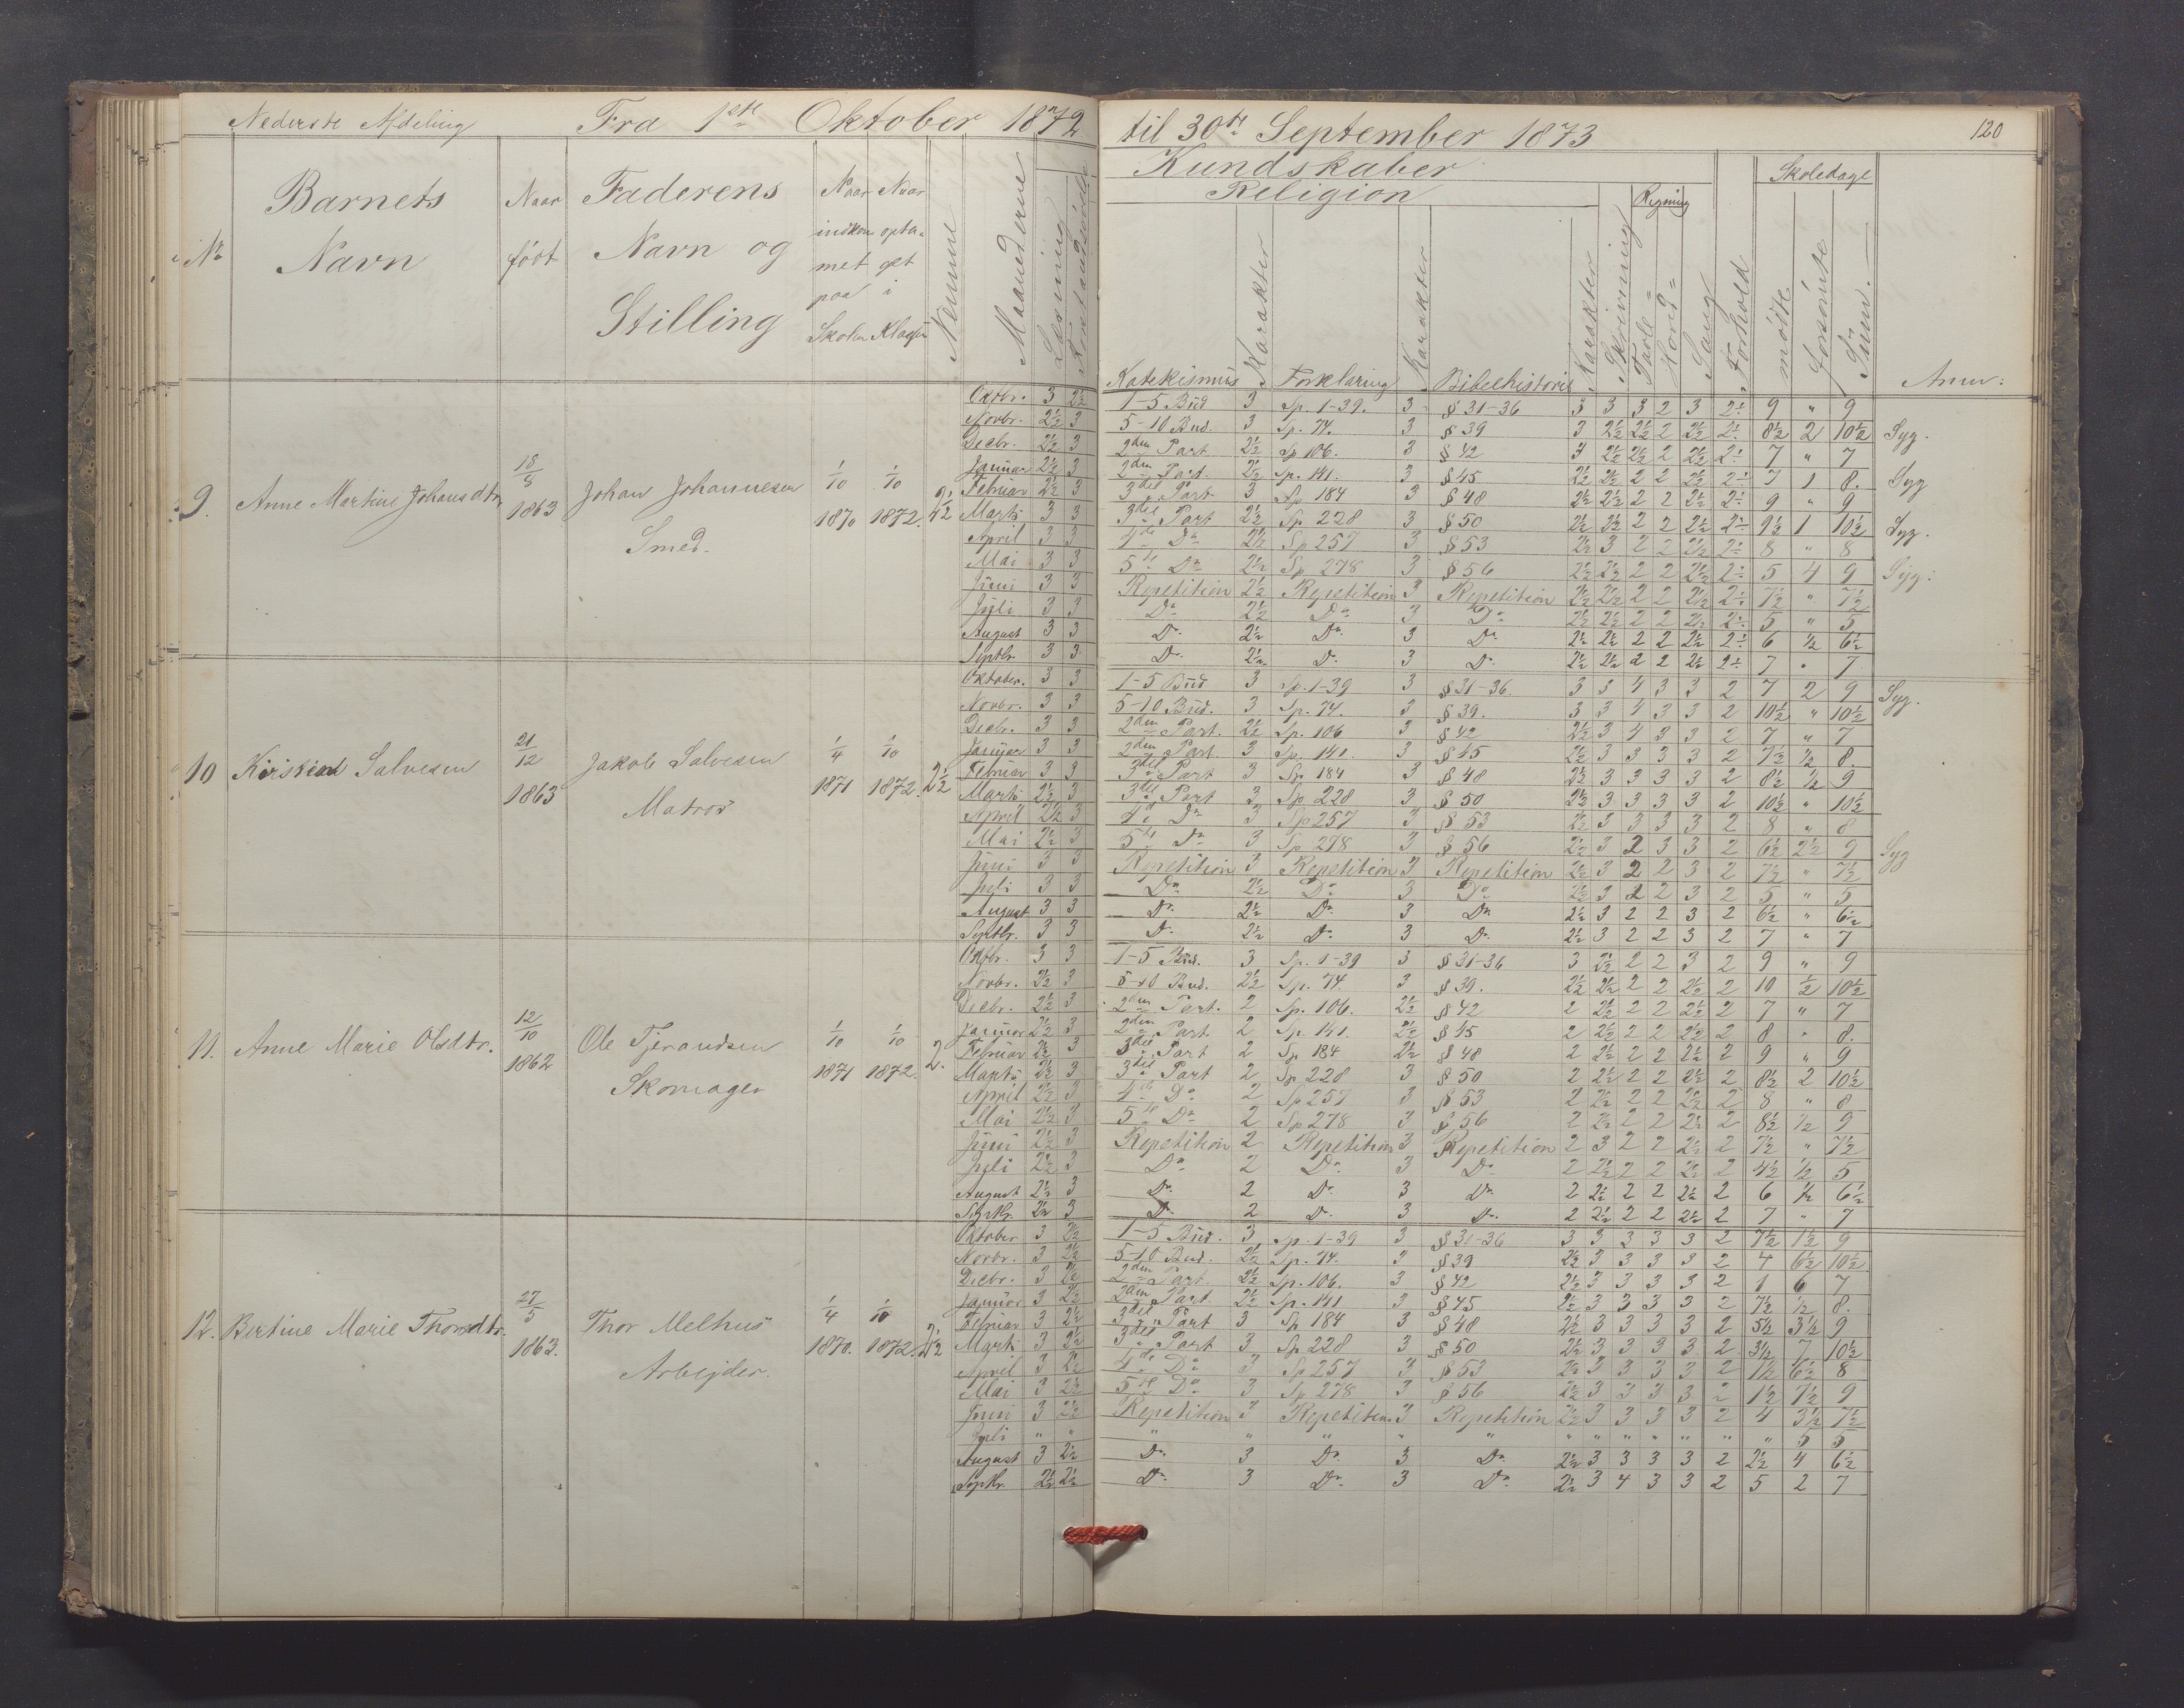 Nederste Afdeling Fra 1ste Oktober 1872 til 30te September 1873 120
Kundskaber Skoledage
Religion Regning
No Barnets Navn Naar født Faderens Navn og Stilling Naar indkommet paa Skolen Naar optaget i Klassen Nemme Maanederne Læsning Forstandsøvelse Katekismus Karakter Forklaring Karakter Bibelhistorie Karakter Skrivning Tavle= Hoved= Sang Forhold mødte forsømte Sum. Anm:
9. Anne Martine Johansdtr. 18/8 1863 Johan Johannesen Smed. 1/10 1870 1/10 1872. 2½
Oktbr. 3 2½ 1-5 Bud 3 Sp. 1-39. 3 § 31-36 3 3 3 2 3 2÷ 9 " 9
Novbr. 2½ 3 5-10 Bud. 3 Sp. 74. 3 § 39 3 2½ 2½ 2 2½ 2÷ 8½ 2 10½ Syg.
Decbr. 2½ 3 2den Part 2½ Sp 106. 3 § 42 3 2½ 2½ 2 2½ 2÷ 7 " 7
Januar 2½ 3 2den Part. 2½ Sp. 141. 3 § 45 2½ 2½ 2 2 2½ 2÷ 7 1 8. Syg
Februar 2½ 3 3die Part 3 Sp 184 3 § 48 2½ 2½ 2 2 2½ 2÷ 9 " 9
Marts 3 3 3die Part 2½ Sp. 228 3 § 50 2½ 2½ 2 2 2½ 2÷ 9½ 1 10½ Syg.
April 3 3 4de Do 2½ Sp 257 3 § 53 2½ 3 2 2 2½ 2÷ 8 " 8
Mai 3 3 5te Do 2½ Sp 278 3 § 56 2½ 2½ 2 2 2½ 2÷ 5 4 9 Syg.
Juni 3 3 Repetition 2½ Repetition 3 Repetition 2½ 2½ 2 2 2½ 2÷ 7½ " 7½
Juli 3 3 Do 2½ Do 3 Do 2½ 2½ 2 2 2½ 2÷ 5 " 5
August 3 3 Do 2½ Do 3 Do 2½ 2½ 2 2 2½ 2÷ 6 ½ 6½
Septbr. 3 3 Do 2½ Do 3 Do 2½ 2½ 2 2 2½ 2÷ 7 " 7
10 Salvesen 21/12 1863 Jakob Salvesen Matros 1/4 1871 1/10 1872. 2½
Oktober. 3 3 1-5 Bud 3 Sp. 1-39 3 § 31-36. 3 3 4 3 3 2 7 2 9 Syg.
Novbr. 3 3 5-10 Bud. 3 Sp. 74. 3 § 39. 3 3 4 3 3 2 10½ " 10½
Decbr. 3 3 2den Part. 2½ Sp. 106 3 § 42 2½ 3 4 3 3 2 7 " 7
Januar 3 3 2den Part. 3 Sp. 141. 3 § 45 2½ 3 3 3 3 2 7½ ½ 8.
Februar 3 3 3die Part 3 Sp 184 3 § 48 2½ 3 3 3 3 2 8½ ½ 9
Marts 2½ 3 3die Part 3 Sp 228 3 § 50 2½ 3 3 3 3 2 10½ " 10½
April 2½ 3 4de Do 3 Sp 257 3 § 53 2½ 3 3 3 3 2 8 " 8
Mai 2½ 3 5te Do 3 Sp 278 3 § 56 2½ 3 2 3 3 2 6½ 2½ 9 Syg
Juni 3 3 Repetition 3 Repetition 3 Repetition 2½ 3 2 2 3 2 7½ " 7½
Juli 3 3 Do 2½ Do 3 Do 2½ 3 2 2 3 2 5 " 5
August 3 3 Do 2½ Do 3 Do 2½ 3 2 2 3 2 6½ " 6½
Septbr. 3 3 Do 2½ Do 3 Do 2½ 3 2 2 3 2 7 " 7
11. Anne Marie Olsdtr. 12/10 1862 Ole Tjerandsen Skomager 1/10 1871 1/10 1872. 2.
Oktbr. 3 3 1-5 Bud. 3 Sp. 1-39 3 § 31-36 3 2½ 2 2 3 2 9 " 9
Novbr. 2½ 3 5-10 Bud. 2½ Sp. 74 3 § 39. 2½ 2½ 2 2 2½ 2 10 ½ 10½
Decbr. 2½ 3 2den Part. 2 Sp. 106. 2½ § 42 2 2½ 2 2 2½ 2 7 " 7
Januar 2½ 3 2den Part. 2 Sp. 141. 2½ § 45 2 2½ 2 2 2½ 2 8 " 8.
Februar 2½ 3 3die Part 2 Sp 184 2½ § 48 2 2½ 2 2 2½ 2 9 " 9
Marts 2½ 3 3die Part 2 Sp. 228 3 § 50 2 2½ 2 2 2½ 2 8½ 2 10½
April 2½ 3 4de Do 2 Sp 257 3 § 53 2 2½ 2 2 2½ 2 8 " 8
Mai 2½ 3 5te Do 2 Sp 278 3 § 56 2 2½ 2 2 2½ 2 8½ ½ 9
Juni 2½ 3 Repetition 2 Repetition 3 Repetition 2 3 2 2 2½ 2 7½ " 7½
Juli 2½ 3 Do 2 Do 3 Do 2 2½ 2 2 2½ 2 4½ ½ 5
August 2½ 3 Do 2 Do 3 Do 2 2½ 2 2 2½ 2 6 ½ 6½
Septbr. 2½ 3 Do 2 Do 3 Do 2 2½ 2 2 2½ 2 7 " 7
12. Bertine Marie Thorsdtr. 27/5 1863. Thor Melhus Arbejder. 1/4 1870. 1/10 1872. 2½
Oktober 3 2½ 1-5 Bud. 3 Sp. 1-39 3 § 31-36 3 3 3 3 3 2 7½ 1½ 9
Novbr. 3 2½ 5-10 Bud. 2½ Sp. 74. 3 § 39 2½ 3 3 3 3 2 4 6½ 10½
Decbr. 3 2½ 2den Part. 2½ Sp. 106. 3 § 42 2½ 3 3 3 3 2 1 6 7
Januar 3 2½ 2den Part 2½ Sp. 141 3 § 45 2½ 3 3 3 3 2 7½ ½ 8.
Februar 3 2½ 3die Part 3 Sp 184 3 § 48 2½ 3 3 3 3 2 5½ 3½ 9
Marts 3 2½ 3die Part 3 Sp 228 3 § 50 2½ 3 3 3 3 2 3½ 7 10½
April 3 2½ 4de Do 3 Sp 257 3 § 53 2½ 3 3 3 3 2 1½ 6½ 8
Mai 3 2½ 5te Do 3 Sp 278 3 § 56 2½ 3 3 3 3 2 1½ 7½ 9
Juni 3 2½ Repetition 3 Repetition 3 Repetition 2½ 3 3 3 3 2 4 3½ 7½
Juli " " " " " " " " " " " " " " " 5 5
August 3 2½ Do 3 Do 3 Do 2½ 3 3 3 3 2 2½ 4 6½
Septbr. 2½ 2½ Do 3 Do 3 Do 2½ 3 4 3 3 2 5 2 7